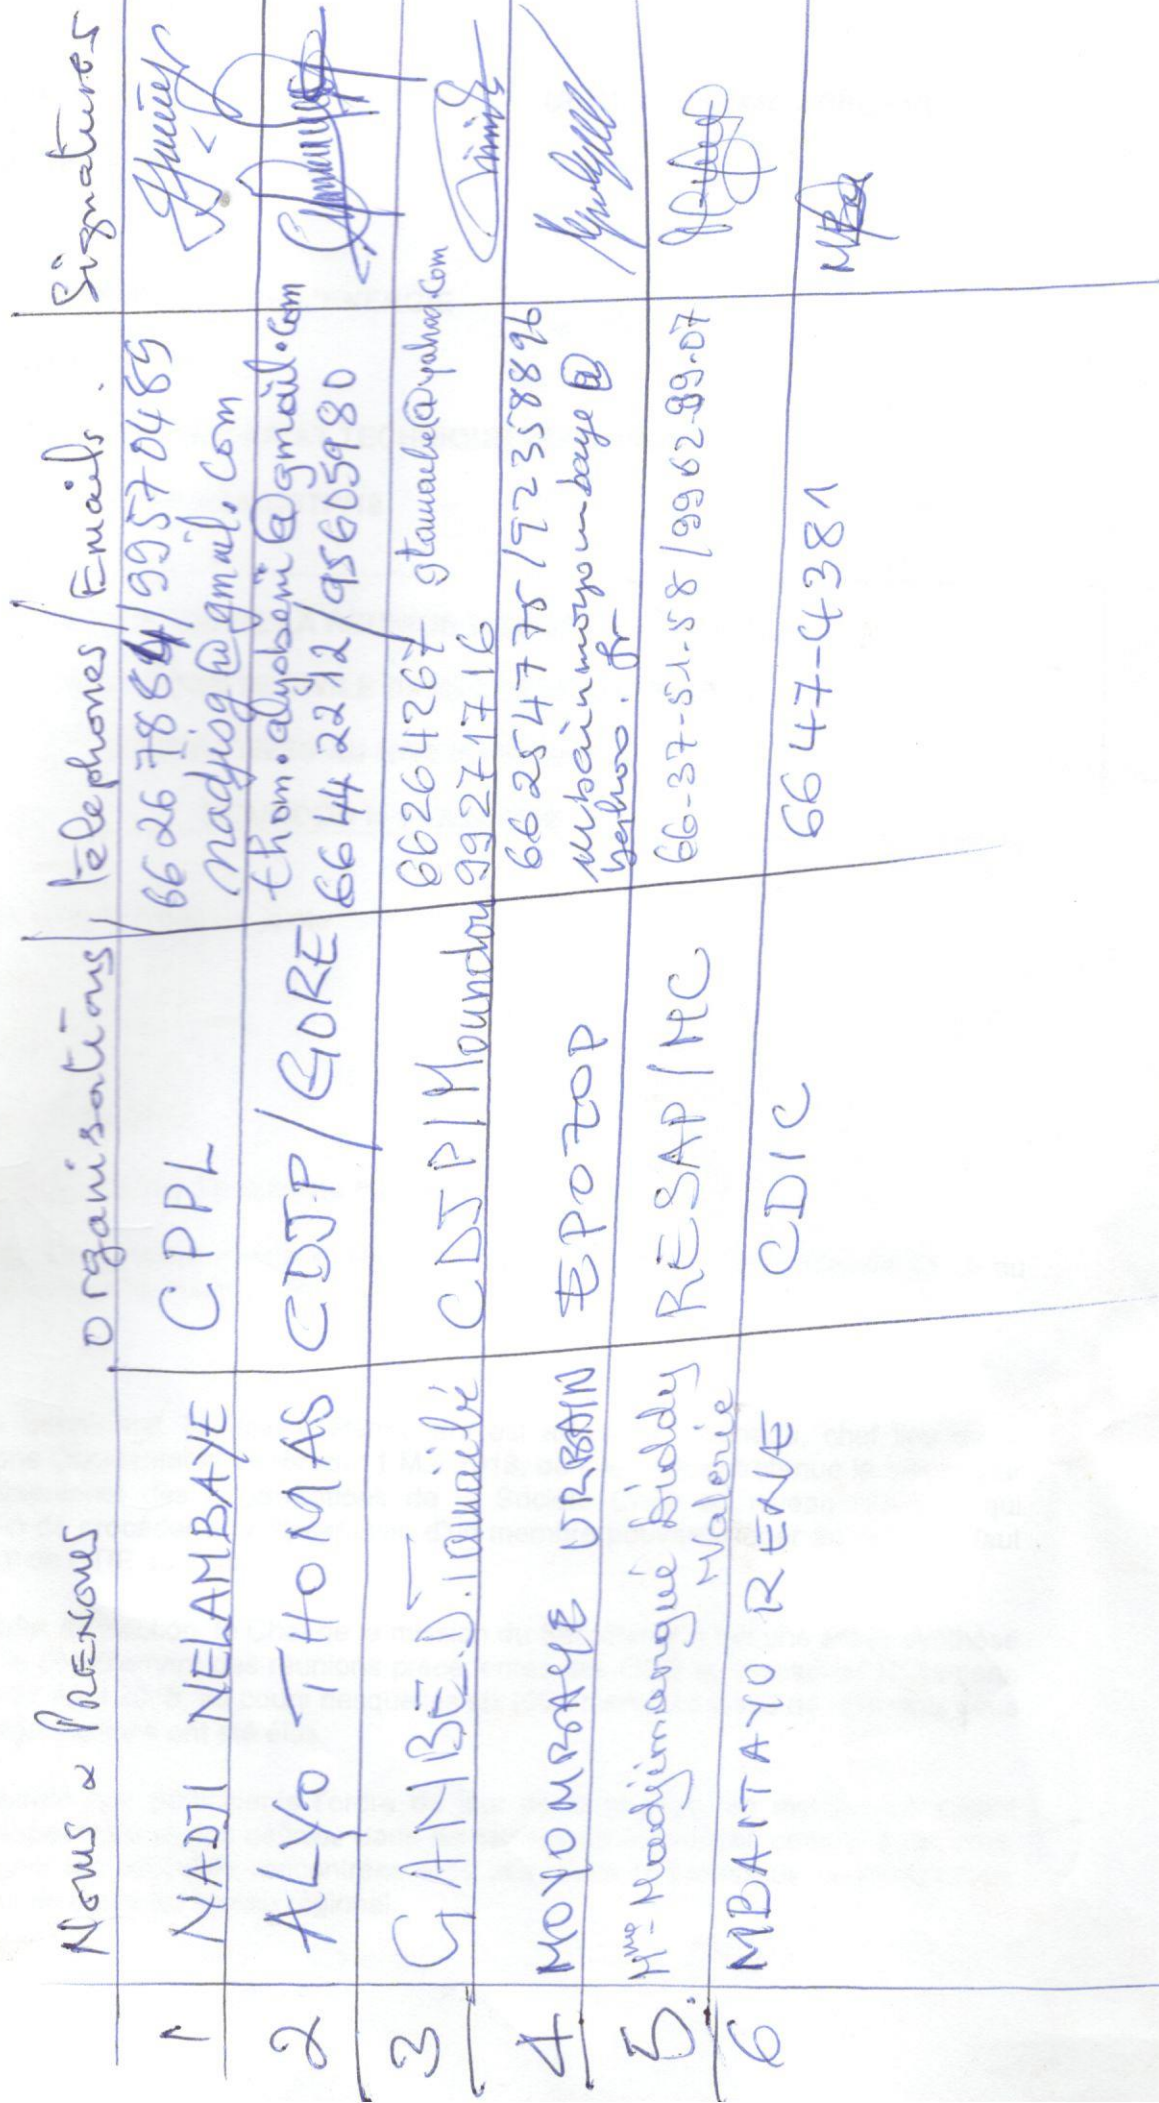 Noms & PRENOMS organisations Téléphones / Emails Signatures
1 NADJI NELAMBAYE CPPL 66267884 / 99570489
nadjiog@gmail.com
2 ALYO THOMAS CDJP / GORE thom.alyobeni@gmail.com
66442212 / 95605980
3 GANBE.T.Tomaibé CDJP / Moundou 66264267 / gtamaibe@yahoo.com
99271716
4 MOYOMBAYE URBAIN EPOZOP 66254775 / 92358896
urbainmoyombaye@
yahoo.fr
5. Mme Madjimangué Doddy RESAP / MC 66-37-51-58 / 99 62-99-07
Valerie
6 MBAITA-YO RENE CDIC 6647-4381